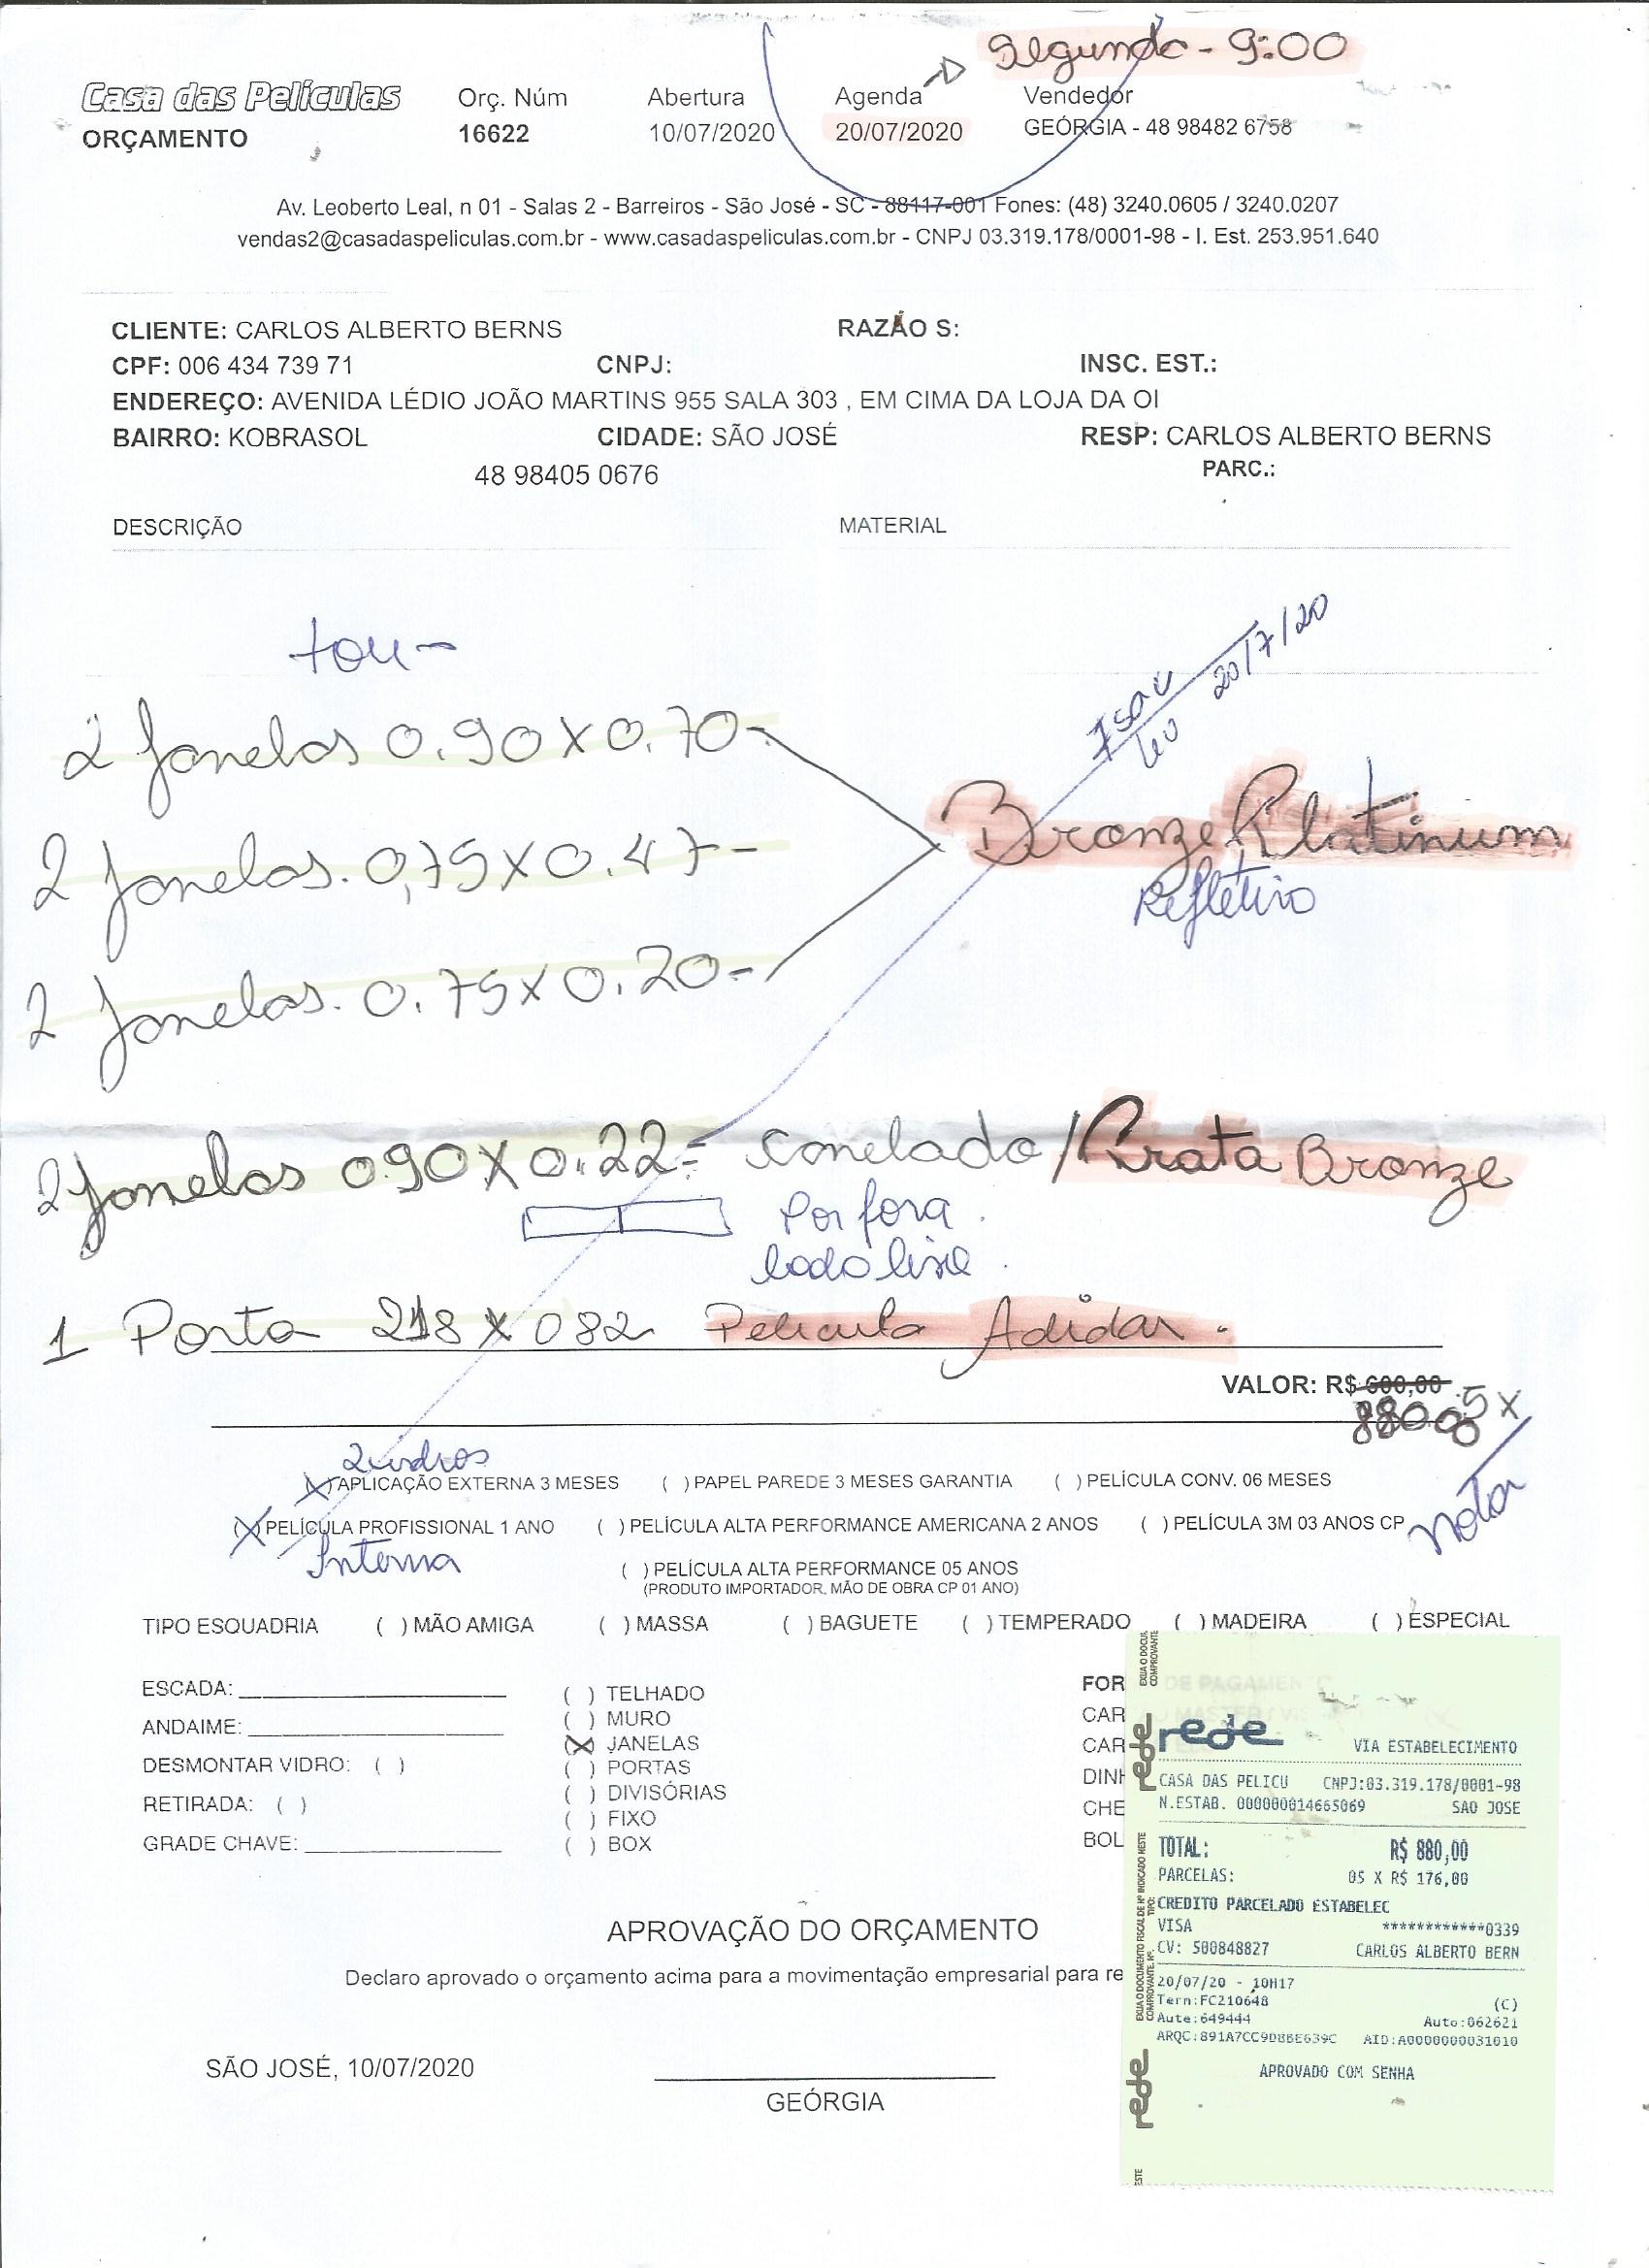 Segunda - 9:00
Casa das Películas
ORÇAMENTO
Orç. Núm
16622
Abertura
10/07/2020
Agenda
20/07/2020
Vendedor
GEÓRGIA - 48 98482 6758
Av. Leoberto Leal, n 01 - Salas 2 - Barreiros - São José - SC - 88117-001 Fones: (48) 3240.0605 / 3240.0207
vendas2@casadaspeliculas.com.br - www.casadaspeliculas.com.br - CNPJ 03.319.178/0001-98 - I. Est. 253.951.640
CLIENTE: CARLOS ALBERTO BERNS RAZÃO S:
CPF: 006 434 739 71 CNPJ: INSC. EST.:
ENDEREÇO: AVENIDA LÉDIO JOÃO MARTINS 955 SALA 303 , EM CIMA DA LOJA DA OI
BAIRRO: KOBRASOL CIDADE: SÃO JOSÉ RESP: CARLOS ALBERTO BERNS
48 98405 0676 PARC.:
DESCRIÇÃO MATERIAL
Isac 20/7/20
Leo
2 Janelas 0.90 X 0.70 -
2 Janelas. 0,75 X 0.47 -
2 Janelas. 0.75 X 0.20 -
Bronze Platinum
Refletivo
2 Janelas 090 X 0.22 = canelado / Prata Bronze
Por fora.
lado liso.
1 Porta 218 X 082 Pelicula Adidas.
VALOR: R$ 600,00
880,00 5 X
Nota
2 vidros
(X) APLICAÇÃO EXTERNA 3 MESES ( ) PAPEL PAREDE 3 MESES GARANTIA ( ) PELÍCULA CONV. 06 MESES
(X) PELÍCULA PROFISSIONAL 1 ANO ( ) PELÍCULA ALTA PERFORMANCE AMERICANA 2 ANOS ( ) PELÍCULA 3M 03 ANOS CP
Interna
( ) PELÍCULA ALTA PERFORMANCE 05 ANOS
(PRODUTO IMPORTADOR, MÃO DE OBRA CP 01 ANO)
TIPO ESQUADRIA ( ) MÃO AMIGA ( ) MASSA ( ) BAGUETE ( ) TEMPERADO ( ) MADEIRA ( ) ESPECIAL
ESCADA:
ANDAIME:
DESMONTAR VIDRO: ( )
RETIRADA: ( )
GRADE CHAVE:
( ) TELHADO
( ) MURO
(X) JANELAS
( ) PORTAS
( ) DIVISÓRIAS
( ) FIXO
( ) BOX
FOR DE PAGAMENTO
CAR
CAR
DINH
CHE
BOL
rede
VIA ESTABELECIMENTO
CASA DAS PELICU CNPJ:03.319.178/0001-98
N.ESTAB. 000000014665069 SAO JOSE
TOTAL: R$ 880,00
PARCELAS: 05 X R$ 176,00
CREDITO PARCELADO ESTABELEC
VISA ************0339
CV: 500848827 CARLOS ALBERTO BERN
20/07/20 - 10H17
Term:FC210648 (C)
Aute:649444 Auto:062621
ARQC:891A7CC9D8BE639C AID:A0000000031010
APROVADO COM SENHA
rede
rede
APROVAÇÃO DO ORÇAMENTO
Declaro aprovado o orçamento acima para a movimentação empresarial para re
SÃO JOSÉ, 10/07/2020
GEÓRGIA